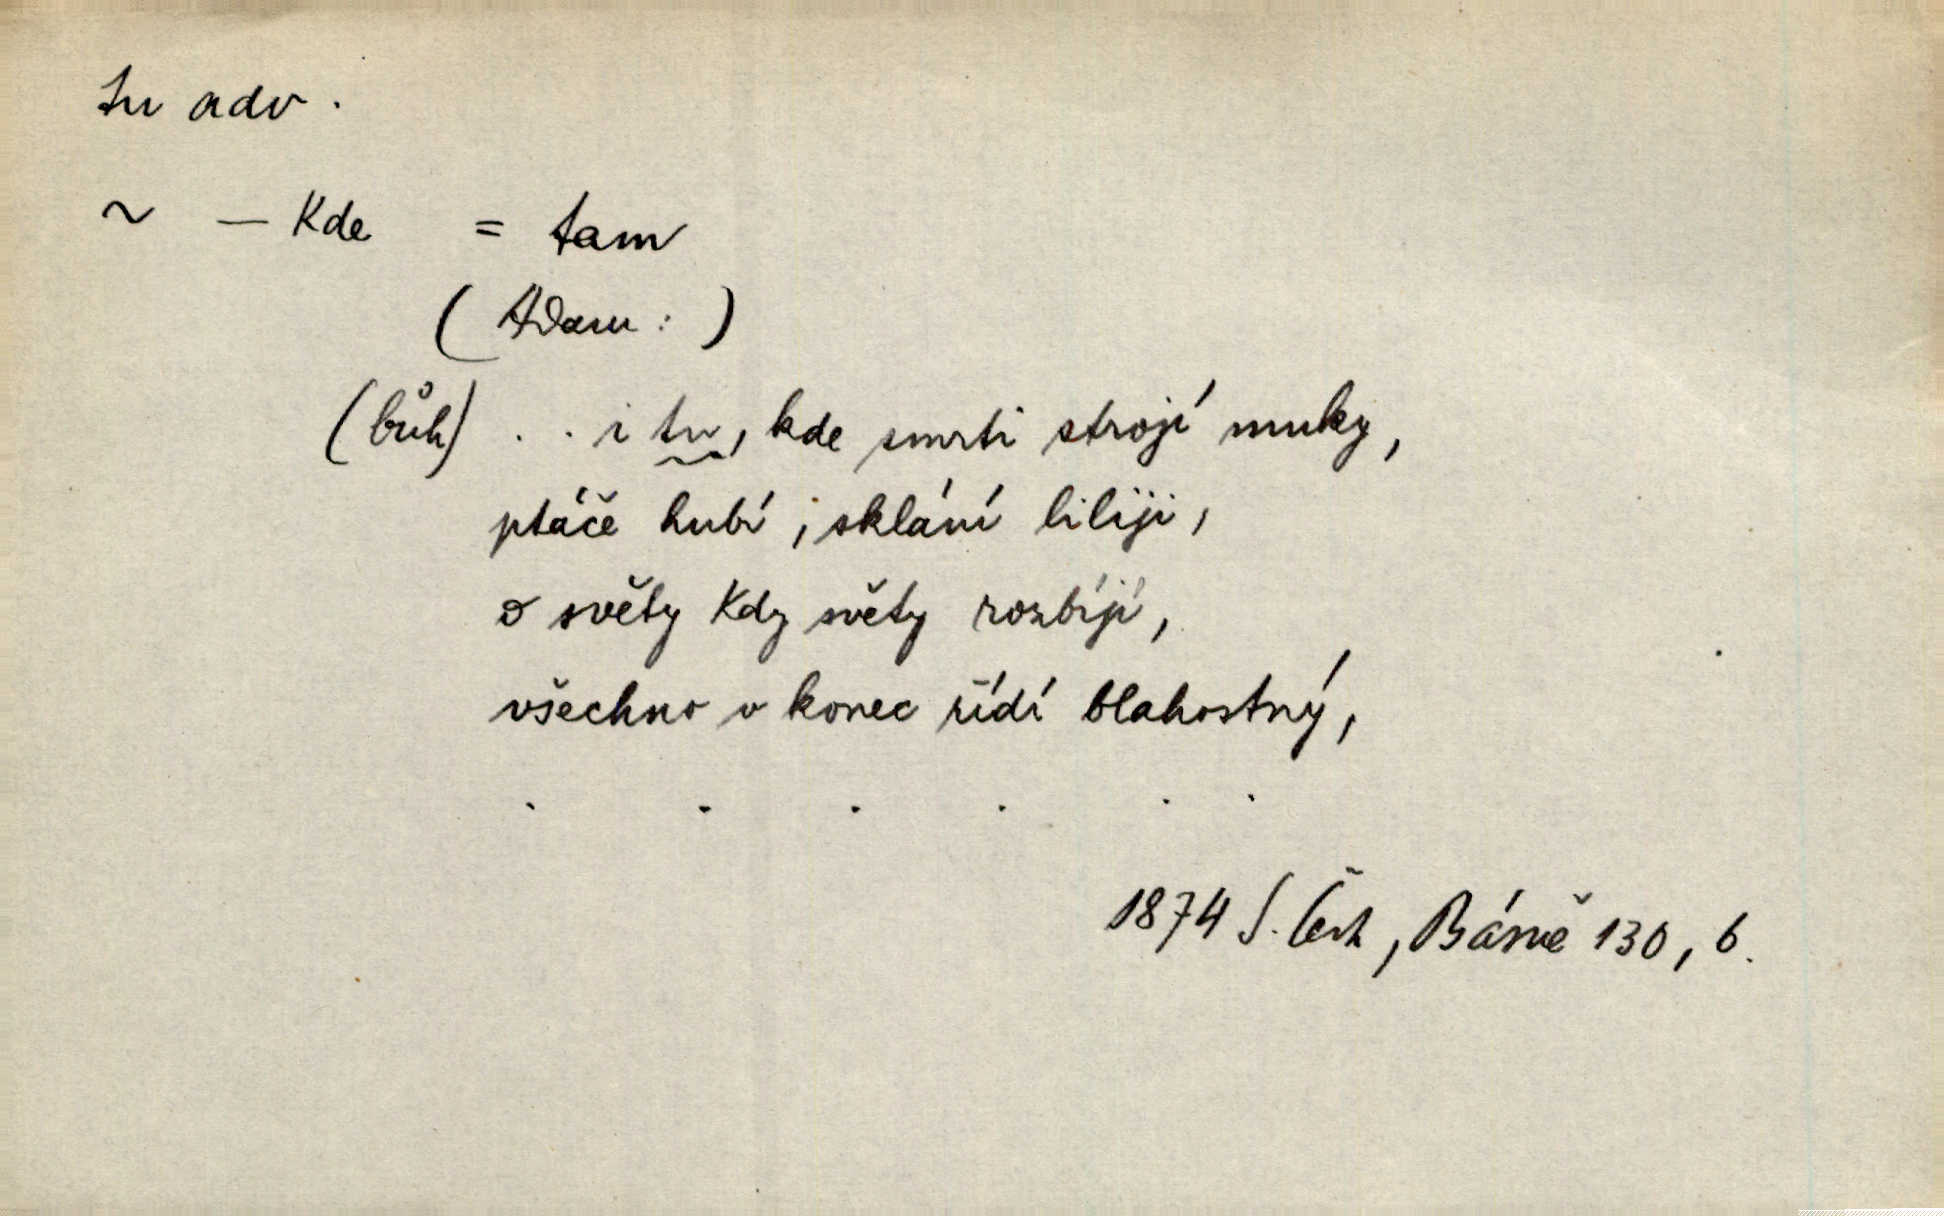 tu adv.
~ — kde = tam
(Adam:)
(bůh) . . i tu, kde smrti strojí muky,
ptáče hubí, sklání liliji,
o světy kdy světy rozbíjí,
všechno v konec řídí blahostný,
. . . . . .
1874 S. Čech, Básně 130, 6.